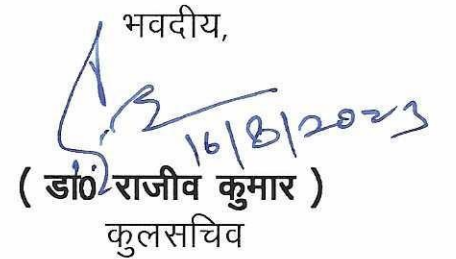 भवदीय,
16/8/2023
( डा0 राजीव कुमार )
कुलसचिव